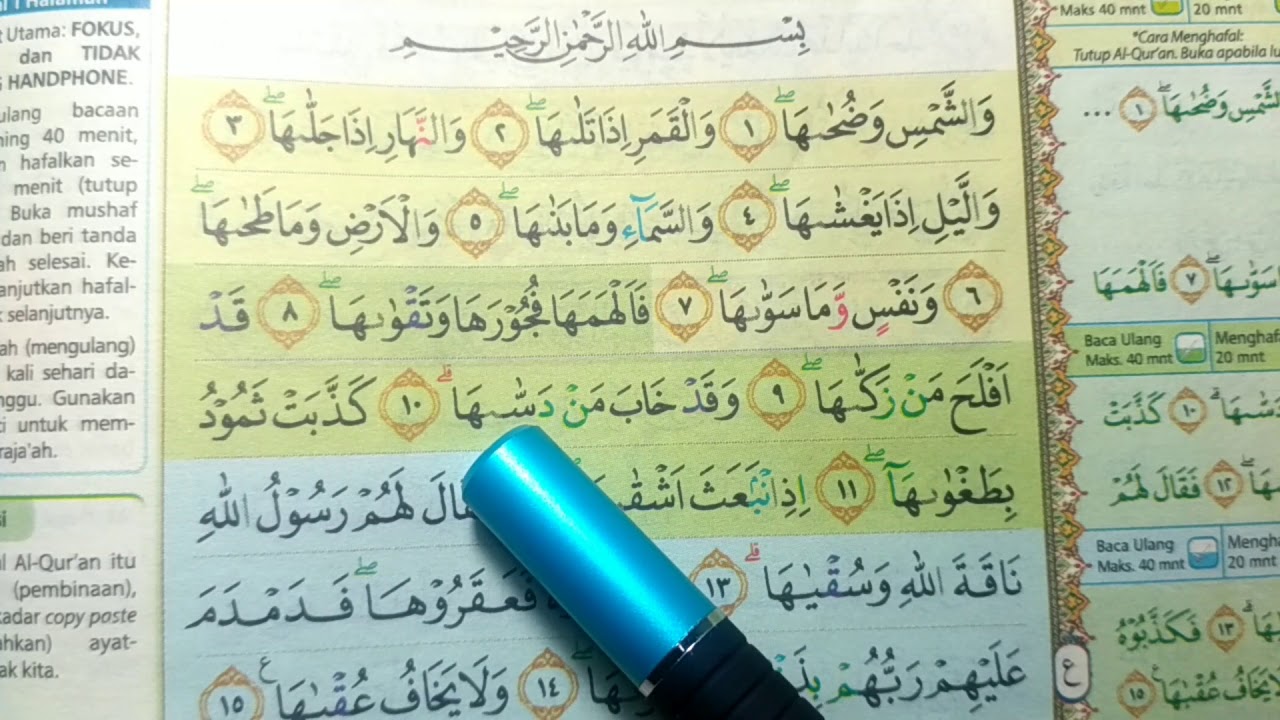 Utama: FOKUS,
dan TIDAK
HANDPHONE.
ulang bacaan
ning 40 menit,
hafalkan se-
menit (tutup
Buka mushaf
dan beri tanda
ah selesai. Ke-
anjutkan hafal-
selanjutnya.
ah (mengulang)
kali sehari da-
nggu. Gunakan
untuk mem-
raja'ah.
al Al-Qur'an itu
(pembinaan),
kadar copy paste
ahkan) ayat-
ak kita.
بِسْــــمِ اللّٰهِ الرَّحْمٰنِ الرَّحِيْــــمِ
وَالشَّمْسِ وَضُحٰىهَاۖ ١ وَالْقَمَرِ اِذَا تَلٰىهَاۖ ٢ وَالنَّهَارِ اِذَا جَلّٰىهَاۖ ٣
وَالَّيْلِ اِذَا يَغْشٰىهَاۖ ٤ وَالسَّمَاۤءِ وَمَا بَنٰىهَاۖ ٥ وَالْاَرْضِ وَمَا طَحٰىهَاۖ
٦ وَنَفْسٍ وَّمَا سَوّٰىهَاۖ ٧ فَاَلْهَمَهَا فُجُوْرَهَا وَتَقْوٰىهَاۖ ٨ قَدْ
اَفْلَحَ مَنْ زَكّٰىهَاۖ ٩ وَقَدْ خَابَ مَنْ دَسّٰىهَاۗ ١٠ كَذَّبَتْ ثَمُوْدُ
بِطَغْوٰىهَآۖ ١١ اِذِ انْۢبَعَثَ اَشْقٰىهَا لَهُمْ رَسُوْلُ اللّٰهِ
نَاقَةَ اللّٰهِ وَسُقْيٰىهَاۗ ١٣ فَعَقَرُوْهَاۖ فَدَمْدَمَ
عَلَيْهِمْ رَبُّهُمْ ١٤ وَلَا يَخَافُ عُقْبٰىهَا ࣖ ١٥
Maks 40 mnt
20 mnt
*Cara Menghafal:
Tutup Al-Qur'an. Buka apabila lu
وَضُحٰىهَاۖ ١ ...
٧ فَاَلْهَمَهَا
Baca Ulang
Maks. 40 mnt
Menghafa
20 mnt
١٠ كَذَّبَتْ
١٢ فَقَالَ لَهُمْ
Baca Ulang
Maks. 40 mnt
Mengha
20 mnt
١٣ فَكَذَّبُوْهُ
يَخَافُ عُقْبٰىهَا ࣖ ١٥
ع